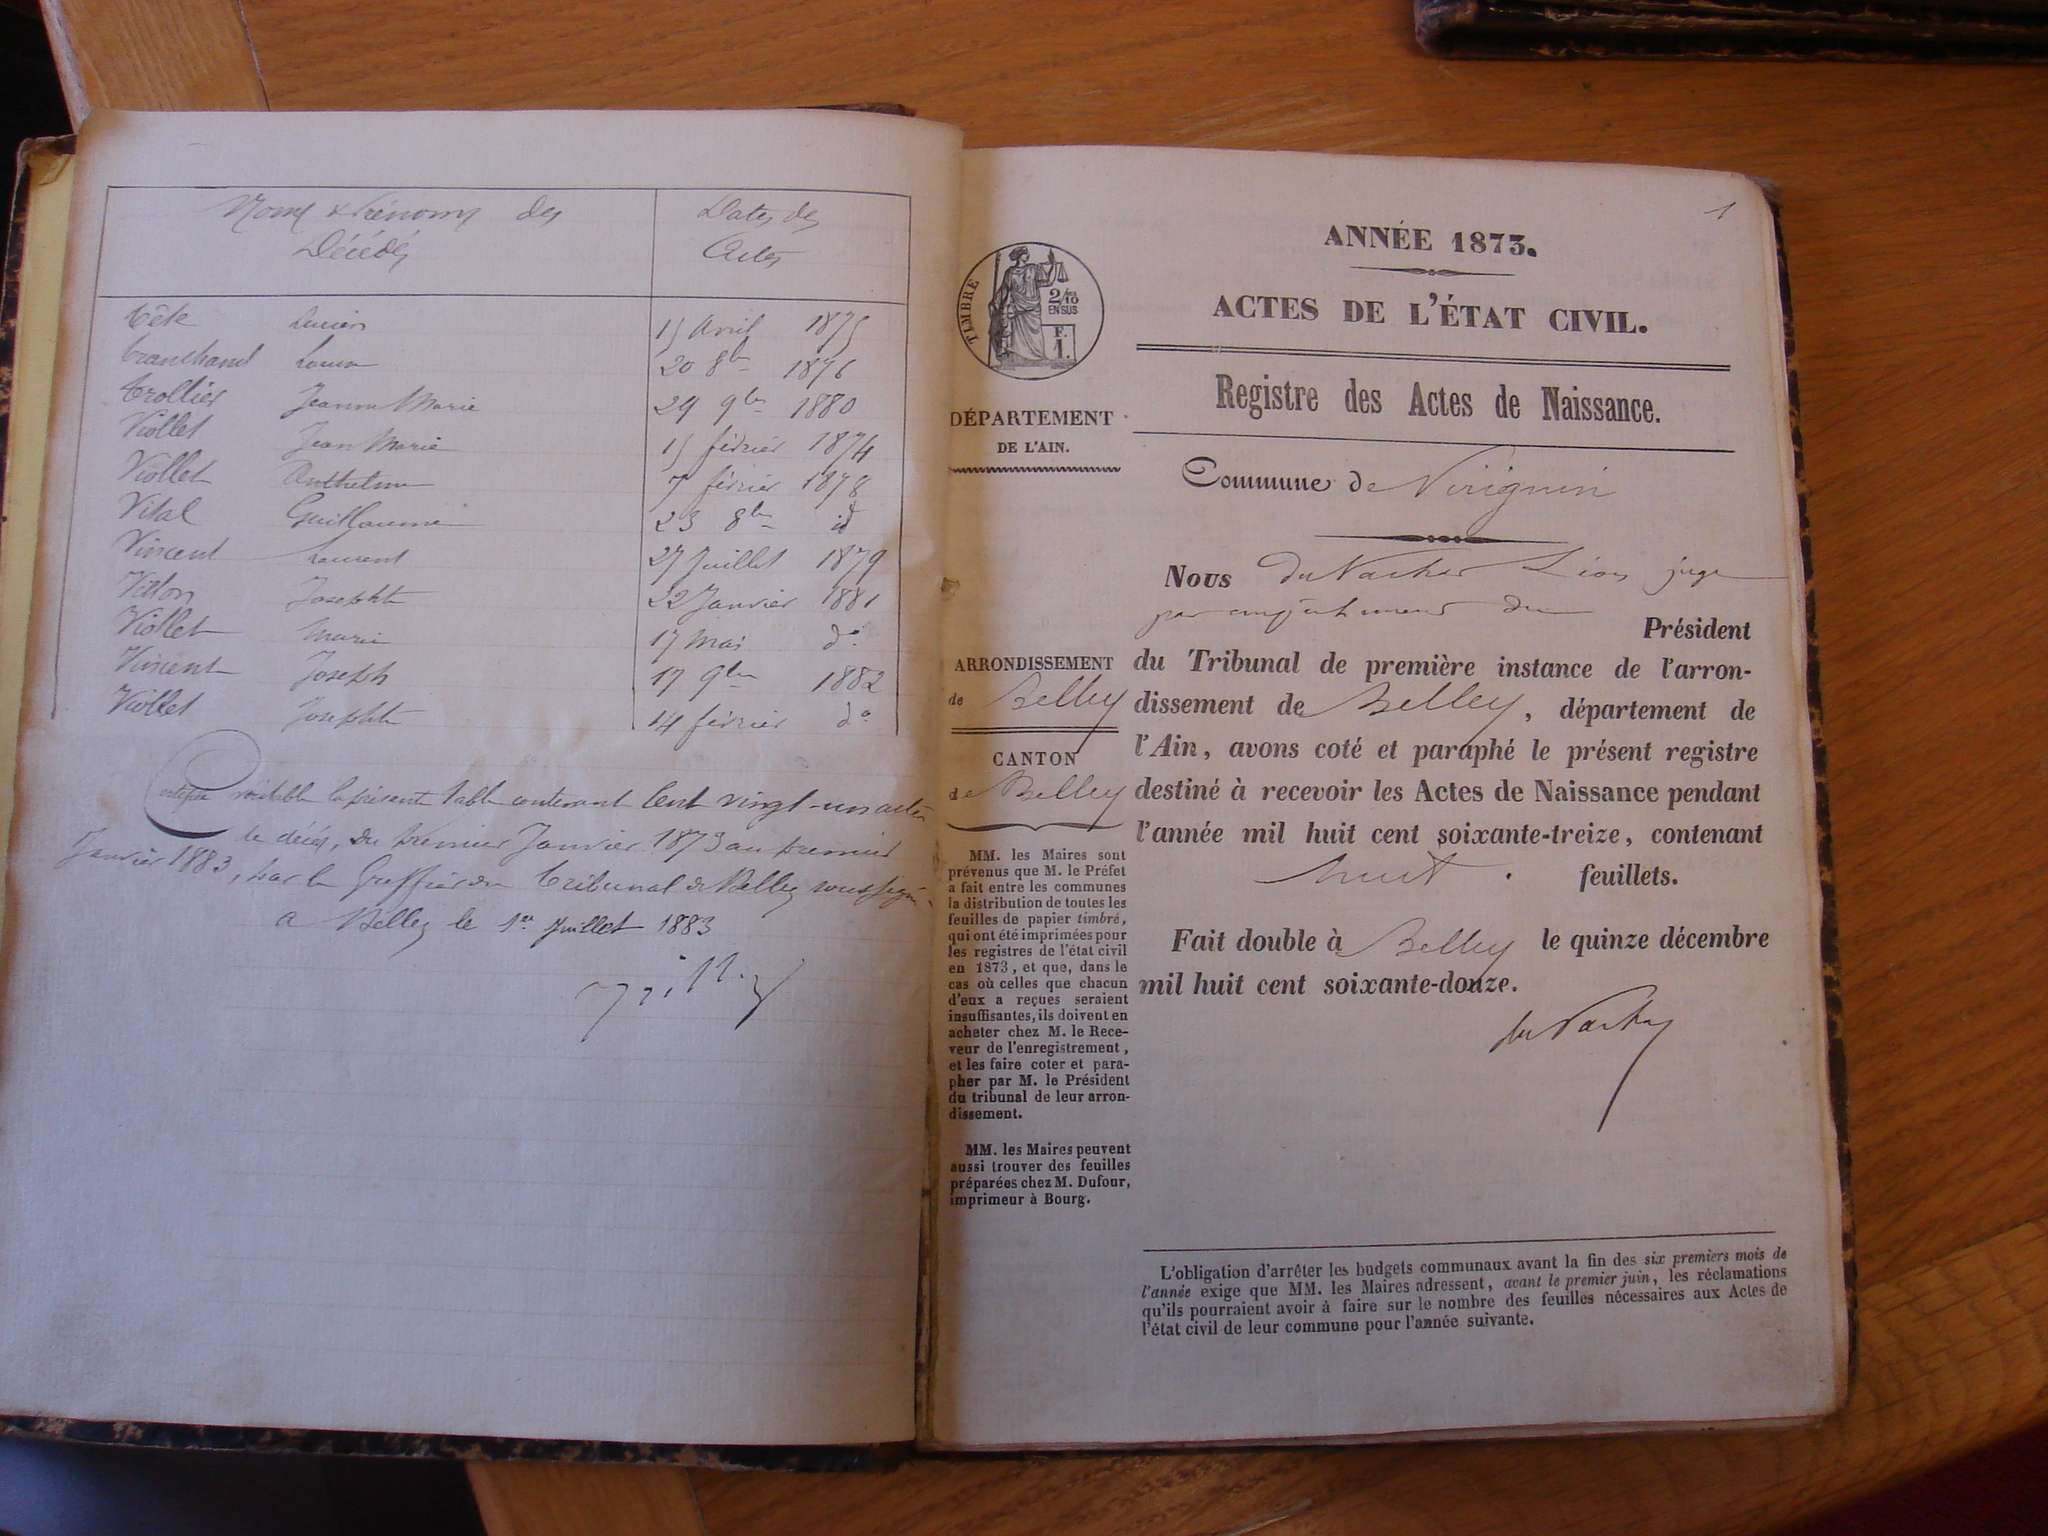 Noms & Prénoms des Décédés
Dates des Actes
Tête Lucien 15 Avril 1875
Tranchand Louise 20 8bre 1876
Trollier Jeanne Marie 29 9bre 1880
Viollet Jean Marie 15 février 1874
Viollet Anthelme 7 février 1878
Vital Guillaume 23 8bre id
Vincent Laurent 27 Juillet 1879
Josephte 22 Janvier 1881
Viollet Marie 17 Mai do
Vincent Joseph 17 9bre 1882
Viollet Josephte 14 février do
Certifié véritable la présente table contenant Cent vingt-un actes
de décès, du premier Janvier 1873 au premier
Janvier 1883, par le Greffier du Tribunal de Belley soussigné
a Belley le 1er Juillet 1883
1
ANNÉE 1873.
ACTES DE L'ÉTAT CIVIL.
Registre des Actes de Naissance.
Commune de Virignin
TIMBRE
2/10
EN SUS
F.
1.
DÉPARTEMENT
DE L'AIN.
ARRONDISSEMENT
de Belley
CANTON
de Belley
MM. les Maires sont
prévenus que M. le Préfet
a fait entre les communes
la distribution de toutes les
feuilles de papier timbré,
qui ont été imprimées pour
les registres de l'état civil
en 1873, et que, dans le
cas où celles que chacun
d'eux a reçues seraient
insuffisantes, ils doivent en
acheter chez M. le Rece-
veur de l'enregistrement,
et les faire coter et para-
pher par M. le Président
du tribunal de leur arron-
dissement.
MM. les Maires peuvent
aussi trouver des feuilles
préparées chez M. Dufour,
imprimeur à Bourg.
Nous du Vachat Léon juge
par empêchement du Président
du Tribunal de première instance de l'arron-
dissement de Belley, département de
l'Ain, avons coté et paraphé le présent registre
destiné à recevoir les Actes de Naissance pendant
l'année mil huit cent soixante-treize, contenant
huit feuillets.
Fait double à Belley le quinze décembre
mil huit cent soixante-douze.
du Vachat
L'obligation d'arrêter les budgets communaux avant la fin des six premiers mois de
l'année exige que MM. les Maires adressent, avant le premier juin, les réclamations
qu'ils pourraient avoir à faire sur le nombre des feuilles nécessaires aux Actes de
l'état civil de leur commune pour l'année suivante.